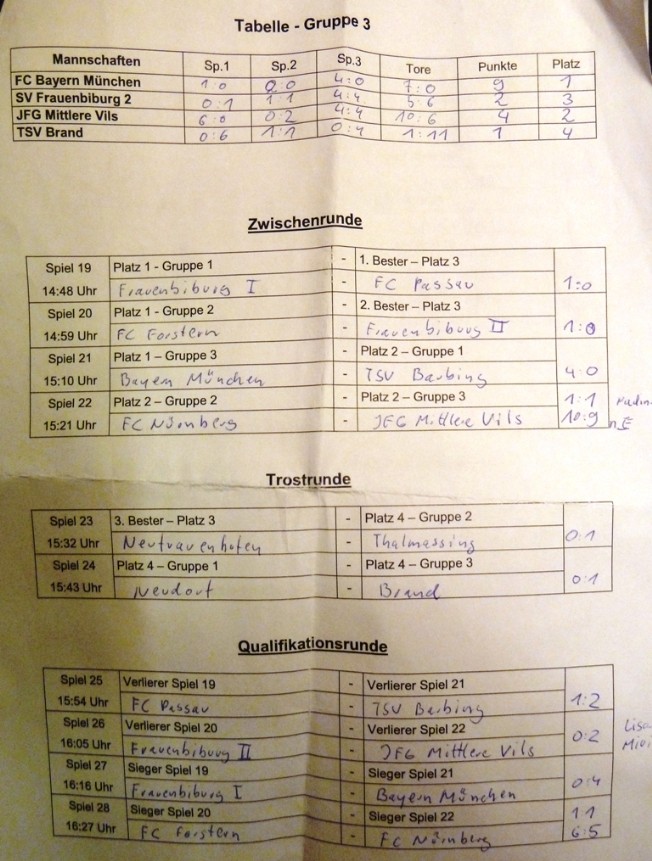 Tabelle - Gruppe 3
Mannschaften Sp.1 Sp.2 Sp.3 Tore Punkte Platz
FC Bayern München 1:0 2:0 4:0 7:0 9 1
SV Frauenbiburg 2 0:1 1:1 4:4 5:6 2 3
JFG Mittlere Vils 6:0 0:2 4:4 10:6 4 2
TSV Brand 0:6 1:1 0:4 1:11 1 4
Zwischenrunde
Spiel 19 Platz 1 - Gruppe 1 - 1. Bester – Platz 3
14:48 Uhr Frauenbiburg I FC Passau 1:0
Spiel 20 Platz 1 - Gruppe 2 - 2. Bester – Platz 3
14:59 Uhr FC Forstern - Frauenbiburg II 1:0
Spiel 21 Platz 1 – Gruppe 3 - Platz 2 – Gruppe 1
15:10 Uhr Bayern München - TSV Barbing 4:0
Spiel 22 Platz 2 – Gruppe 2 - Platz 2 – Gruppe 3 1:1
15:21 Uhr FC Nürnberg - JFG Mittlere Vils 10:9 n.E
Trostrunde
Spiel 23 3. Bester – Platz 3 - Platz 4 – Gruppe 2
15:32 Uhr Neufrauenhofen - Thalmassing 0:1
Spiel 24 Platz 4 – Gruppe 1 - Platz 4 – Gruppe 3
15:43 Uhr Neudorf - Brand 0:1
Qualifikationsrunde
Spiel 25 Verlierer Spiel 19 - Verlierer Spiel 21
15:54 Uhr FC Passau - TSV Barbing 1:2
Spiel 26 Verlierer Spiel 20 - Verlierer Spiel 22 Lisa
16:05 Uhr Frauenbiburg II - JFG Mittlere Vils 0:2
Spiel 27 Sieger Spiel 19 - Sieger Spiel 21
16:16 Uhr Frauenbiburg I - Bayern München 0:4
Spiel 28 Sieger Spiel 20 - Sieger Spiel 22 1:1
16:27 Uhr FC Forstern - FC Nürnberg 6:5